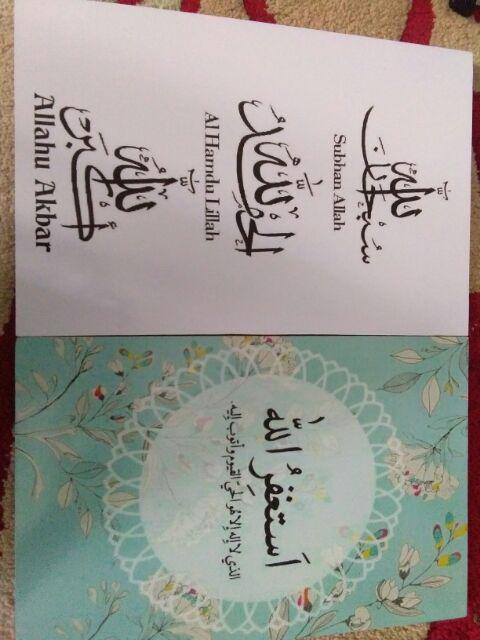 سبحان الله
Subhan Allah
الحمد لله
Al Hamdu Lillah
الله أكبر
Allahu Akbar
أَستَغفِرُ اللّٰه
الذي لا إله إلا هو الحيّ القيوم وأتوب إليه.